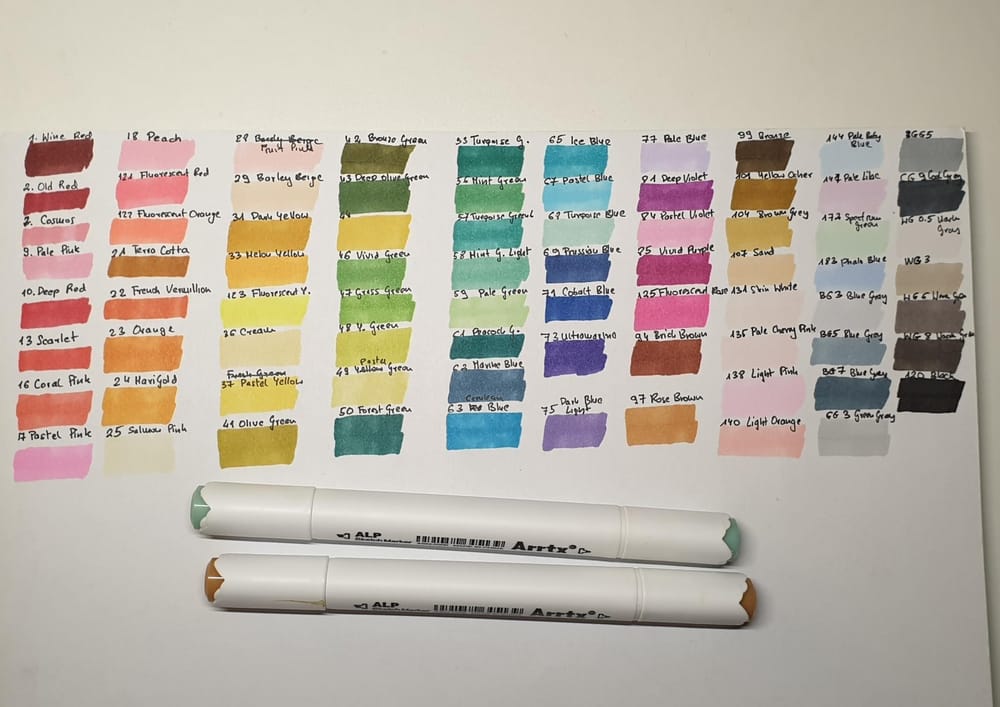 1. Wine Red
2. Old Red
7. Cosmos
9. Pale Pink
10. Deep Red
13 Scarlet
16 Coral Pink
17 Pastel Pink
18 Peach
121 Fluorescent Red
122 Fluorescent Orange
21 Terra Cotta
22 French Vermillion
23 Orange
24 Marigold
25 Salmon Pink
Fruit Pink
29 Barley Beige
31 Dark Yellow
33 Melow Yellow
123 Fluorescent Y.
26 Cream
37 Pastel Yellow
41 Olive Green
42 Bronze Green
43 Deep Olive Green
44
46 Vivid Green
47 Grass Green
48 Y. Green
Pastel
49 Yellow Green
50 Forest Green
53 Turqoise G.
56 Mint Green
57 Turqoise Green L
58 Mint G. Light
59 Pale Green
61 Peacock G.
62 Marine Blue
Cerulean
63 Blue
65 Ice Blue
67 Pastel Blue
68 Turqoise Blue
69 Prussian Blue
71 Cobalt Blue
73 Ultramarine
Dark Blue
75 Light
77 Pale Blue
81 Deep Violet
84 Pastel Violet
85 Vivid Purple
125 Fluorescent Rose
94 Brick Brown
97 Rose Brown
99 Bronze
101 Yellow Ocher
104 Brown Grey
107 Sand
131 Skin White
135 Pale Cherry Pink
138 Light Pink
140 Light Orange
144 Pale Baby
Blue
147 Pale Lilac
172 Spectrum
Green
183 Phale Blue
BG3 Blue Gray
BG5 Blue Grey
BG7 Blue Grey
GG 3 Green Gray
BGG5
CG 9 Cool Grey
WG 0.5 Warm
Gray
WG 3
WG 6 Warm Gray
WG 8 Warm Gray
120 Black
ALP
Sketch Marker
Arrtx
ALP
Sketch Marker
Arrtx